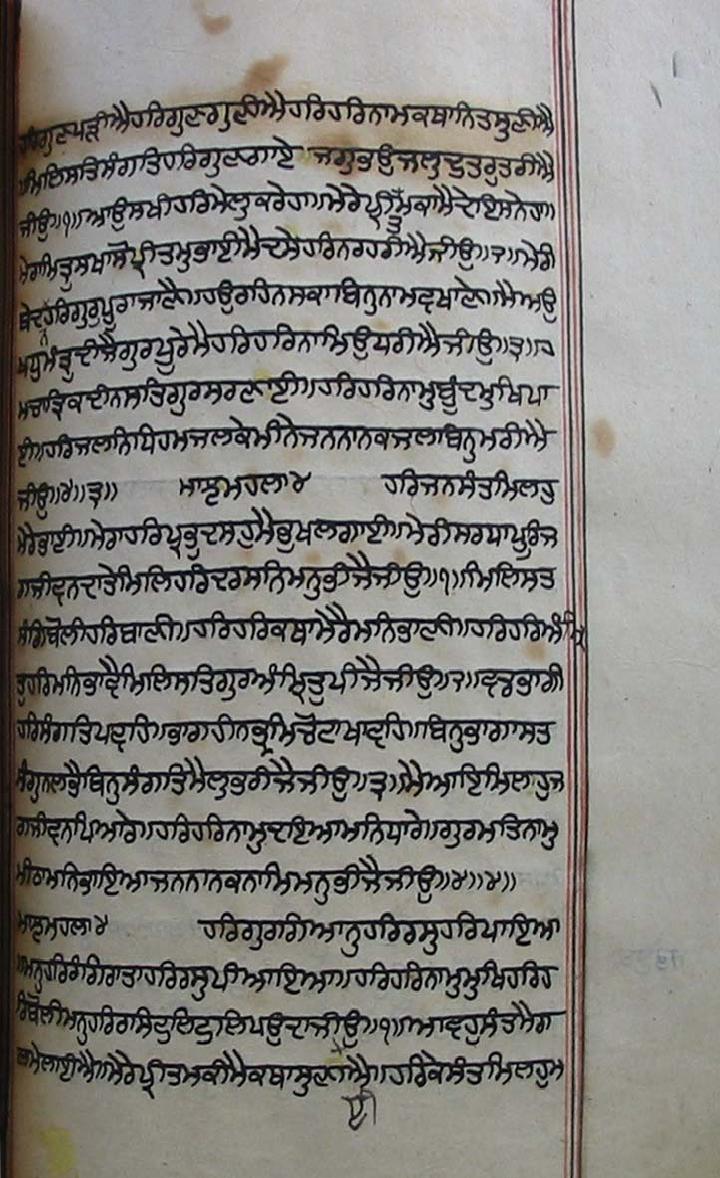 ਹਰਿਗੁਣਪੜੀਐਹਰਿਗੁਣਗੁਣੀਐਹਰਿਹਰਿਨਾਮਕਥਾਨਿਤਸੁਣੀਐ
ਮਿਲਿਸਤਿਸੰਗਤਿਹਰਿਗੁਣਗਾਏ ਜਗੁਭਉਜਲੁਦੁਤਰੁਤਰੀਐ
ਜੀਉ॥੧॥ਆਉਸਖੀਹਰਿਮੇਲੁਕਰੇਹਾ॥ਮੇਰੇਪ੍ਰੀਤਮਕਾਮੈਦੇਇਸਨੇਹਾ॥
ਮੇਰਾਮਿਤ੍ਰੁਸਖਾਸੋਪ੍ਰੀਤਮੁਭਾਈਮੈਦਸੇਹਰਿਨਰਹਰੀਐਜੀਉ॥੨॥ਮੇਰੀ
ਬੇਦਨਹਰਿਗੁਰੁਪੂਰਾਜਾਣੈ॥ਹਉਰਹਿਨਸਕਾਬਿਨੁਨਾਮਵਖਾਣੇ॥ਮੈਅਉ
ਖਧੁਮੰਤ੍ਰੁਦੀਜੈਗੁਰਪੂਰੇਮੈਹਰਿਹਰਿਨਾਮਿਉਧਰੀਐਜੀਉ॥੩॥ਹ
ਮਚਾਤ੍ਰਿਕਦੀਨਸਤਿਗੁਰਸਰਣਾਈ॥ਹਰਿਹਰਿਨਾਮੁਬੂੰਦਮੁਖਿਪਾ
ਈ॥ਹਰਿਜਲਨਿਧਿਹਮਜਲਕੇਮੀਨੇਜਨਨਾਨਕਜਲਬਿਨੁਮਰੀਐ
ਜੀਉ॥੪॥੩॥ ਮਾਝਮਹਲਾ੪ ਹਰਿਜਨਸੰਤਮਿਲਹੁ
ਮੇਰੇਭਾਈ॥ਮੇਰਾਹਰਿਪ੍ਰਭੁਦਸਹੁਮੈਭੁਖਲਗਾਈ॥ਮੇਰੀਸਰਧਾਪੂਰਿਜ
ਗਜੀਵਨਦਾਤੇਮਿਲਿਹਰਿਦਰਸਨਿਮਨੁਭੀਜੈਜੀਉ॥੧॥ਮਿਲਿਸਤ
ਸੰਗਿਬੋਲੀਹਰਿਬਾਣੀ॥ਹਰਿਹਰਿਕਥਾਮੇਰੈਮਨਿਭਾਣੀ॥ਹਰਿਹਰਿਅੰਮ੍ਰਿ
ਤੁਹਰਿਮਨਿਭਾਵੈਮਿਲਿਸਤਿਗੁਰਅੰਮ੍ਰਿਤੁਪੀਜੈਜੀਉ॥੨॥ਵਡਭਾਗੀ
ਹਰਿਸੰਗਤਿਪਾਵਹਿ॥ਭਾਗਹੀਨਭ੍ਰਮਿਚੋਟਾਖਾਵਹਿ॥ਬਿਨੁਭਾਗਾਸਤ
ਸੰਗੁਨਲਭੈਬਿਨੁਸੰਗਤਿਮੈਲੁਭਰੀਜੈਜੀਉ॥੩॥ਮੈਆਇਮਿਲਹੁਜ
ਗਜੀਵਨਪਿਆਰੇ॥ਹਰਿਹਰਿਨਾਮੁਦਇਆਮਨਿਧਾਰੇ॥ਗੁਰਮਤਿਨਾਮੁ
ਮੀਠਾਮਨਿਭਾਇਆਜਨਨਾਨਕਨਾਮਿਮਨੁਭੀਜੈਜੀਉ॥੪॥੪॥
ਮਾਝਮਹਲਾ੪ ਹਰਿਗੁਰਗਿਆਨੁਹਰਿਰਸੁਹਰਿਪਾਇਆ
॥ਮਨੁਹਰਿਰੰਗਿਰਾਤਾਹਰਿਰਸੁਪੀਆਇਆ॥ਹਰਿਹਰਿਨਾਮੁਮੁਖਿਹਰਿਹ
ਰਿਬੋਲੀਮਨੁਹਰਿਰਸਿਟੁਲਿਟੁਲਿਪਉਦਾਜੀਉ॥੧॥ਆਵਹੁਸੰਤਮੈਗ
ਲਮੇਲਾਈਐ॥ਮੇਰੇਪ੍ਰੀਤਮਕੀਮੈਕਥਾਸੁਣਾਈਐ॥ਹਰਿਕੇਸੰਤਮਿਲਹੁਮ